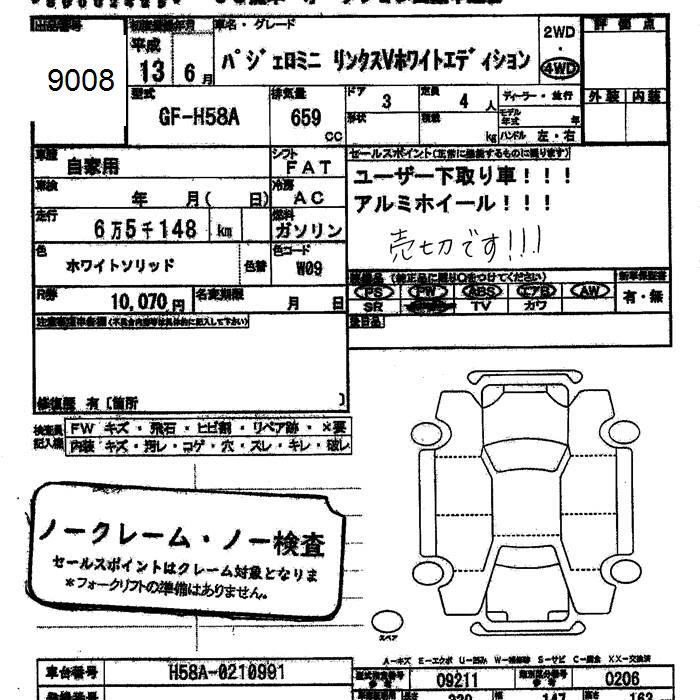 出品番号
9008
初度登録年月
平成
13 6月
車名・グレード
パジェロミニ リンクスVホワイトエディション
2WD
・
4WD
評価点
外装 内装
型式
GF-H58A
排気量
659
CC
ドア
3
定員
4 人
形状
積載
kg
ディーラー・並行
モデル年式 年
ハンドル 左・右
車歴
自家用
シフト
FAT
車検
年 月( 日)
冷房
AC
走行
6万5千148 km
燃料
ガソリン
色
ホワイトソリッド
色替
色コード
W09
R券
10,070円
名変期限
月 日
セールスポイント(正常に機能するものに限ります)
ユーザー下取り車!!!
アルミホイール!!!
売切です!!!
装備品(純正品に限り○をつけてください)
PS PW ABS エアB AW
SR TV カワ
新車保証書
有・無
後日品
注意事項申告欄(不具合内容等は具体的に記入して下さい)
修復歴 有〔箇所 〕
検査員記入欄
FW キズ・飛石・ヒビ割・リペア跡・×要
内装 キズ・汚レ・コゲ・穴・スレ・キレ・破レ
ノークレーム・ノー検査
セールスポイントはクレーム対象となりま
*フォークリフトの準備はありません。
スペア
A-キズ E-エクボ U-凹み W-補修跡 S-サビ C-腐食 XX-交換済
車台番号
H58A-0210991
型式指定番号
09211
類別区分番号
0206